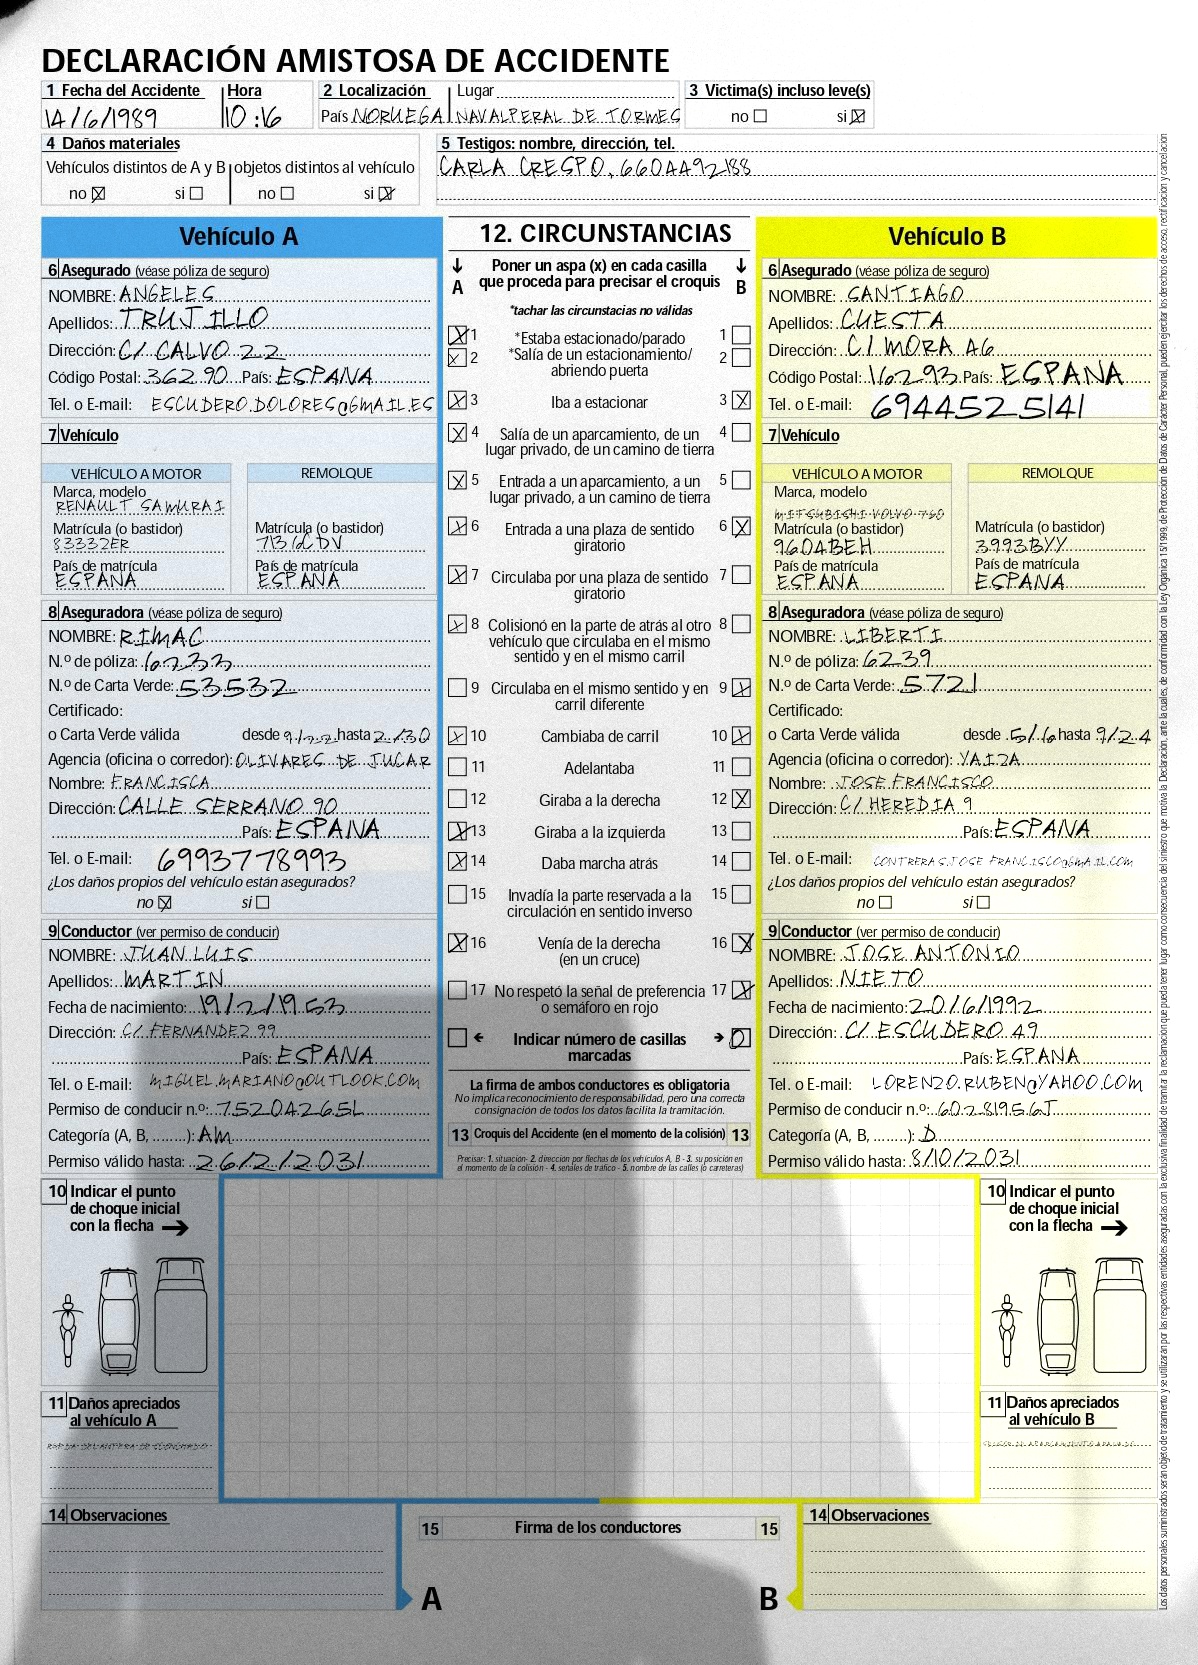 DECLARACIÓN AMISTOSA DE ACCIDENTE
1 Fecha del Accidente Hora
14/6/1989 10:16
2 Localización Lugar
País NORUEGA NAVALPERAL DE TORMES
3 Victima(s) incluso leve(s)
no ☐ si ☒
4 Daños materiales
Vehículos distintos de A y B objetos distintos al vehículo
no ☒ si ☐ no ☐ si ☒
5 Testigos: nombre, dirección, tel.
CARLA CRESPO, 660449288
Vehículo A
6 Asegurado (véase póliza de seguro)
NOMBRE: ANGELES
Apellidos: TRUJILLO
Dirección: C/ CALVO 22
Código Postal: 36290 País: ESPAÑA
Tel. o E-mail: ESCUDERO.DOLORES@GMAIL.ES
7 Vehículo
VEHÍCULO A MOTOR REMOLQUE
Marca, modelo
RENAULT SAMURAI
Matrícula (o bastidor) Matrícula (o bastidor)
83332ER 7136CDV
País de matrícula País de matrícula
ESPAÑA ESPAÑA
8 Aseguradora (véase póliza de seguro)
NOMBRE: RIMAC
N.º de póliza: 6233
N.º de Carta Verde: 53532
Certificado:
o Carta Verde válida desde hasta 2/30
Agencia (oficina o corredor): OLIVARES DE JUCAR
Nombre: FRANCISCA
Dirección: CALLE SERRANO 90
País: ESPAÑA
Tel. o E-mail: 6993778993
¿Los daños propios del vehículo están asegurados?
no ☒ si ☐
9 Conductor (ver permiso de conducir)
NOMBRE: JUAN LUIS
Apellidos: MARTIN
Fecha de nacimiento: 19/2/1953
Dirección: C/ FERNANDEZ 99
País: ESPAÑA
Tel. o E-mail: MIGUEL.MARIANO@OUTLOOK.COM
Permiso de conducir n.º: 75204265L
Categoría (A, B, ........): AM
Permiso válido hasta: 26/2/2031
12. CIRCUNSTANCIAS
A Poner un aspa (x) en cada casilla que proceda para precisar el croquis B
*tachar las circunstacias no válidas
☒ 1 *Estaba estacionado/parado 1 ☐
☒ 2 *Salía de un estacionamiento/ 2 ☐
abriendo puerta
☒ 3 Iba a estacionar 3 ☒
☒ 4 Salía de un aparcamiento, de un 4 ☐
lugar privado, de un camino de tierra
☒ 5 Entrada a un aparcamiento, a un 5 ☐
lugar privado, a un camino de tierra
☒ 6 Entrada a una plaza de sentido 6 ☒
giratorio
☒ 7 Circulaba por una plaza de sentido 7 ☐
giratorio
☒ 8 Colisionó en la parte de atrás al otro 8 ☐
vehículo que circulaba en el mismo
sentido y en el mismo carril
☐ 9 Circulaba en el mismo sentido y en 9 ☒
carril diferente
☒ 10 Cambiaba de carril 10 ☒
☐ 11 Adelantaba 11 ☐
☐ 12 Giraba a la derecha 12 ☒
☒ 13 Giraba a la izquierda 13 ☐
☒ 14 Daba marcha atrás 14 ☐
☐ 15 Invadía la parte reservada a la 15 ☐
circulación en sentido inverso
☒ 16 Venía de la derecha 16 ☒
(en un cruce)
☐ 17 No respetó la señal de preferencia 17 ☒
o semáforo en rojo
☐ Indicar número de casillas 0
marcadas
La firma de ambos conductores es obligatoria
No implica reconocimiento de responsabilidad, pero una correcta
consignación de todos los datos facilita la tramitación.
13 Croquis del Accidente (en el momento de la colisión) 13
Precisar: 1. situación- 2. dirección por flechas de los vehículos A, B - 3. su posición en
el momento de la colisión - 4. señales de tráfico - 5. nombre de las calles (o carreteras)
Vehículo B
6 Asegurado (véase póliza de seguro)
NOMBRE: SANTIAGO
Apellidos: CUESTA
Dirección: C/ MORA 46
Código Postal: 16293 País: ESPAÑA
Tel. o E-mail: 6944525141
7 Vehículo
VEHÍCULO A MOTOR REMOLQUE
Marca, modelo
MITSUBISHI VOLVO 760
Matrícula (o bastidor) Matrícula (o bastidor)
9604BEH 3993BYY
País de matrícula País de matrícula
ESPAÑA ESPAÑA
8 Aseguradora (véase póliza de seguro)
NOMBRE: LIBERTI
N.º de póliza: 6239
N.º de Carta Verde: 5721
Certificado:
o Carta Verde válida desde 5/6 hasta 9/24
Agencia (oficina o corredor): YAIZA
Nombre: JOSE FRANCISCO
Dirección: C/ HEREDIA 9
País: ESPAÑA
Tel. o E-mail: CONTRERAS.JOSE FRANCISCO@GMAIL.COM
¿Los daños propios del vehículo están asegurados?
no ☐ si ☐
9 Conductor (ver permiso de conducir)
NOMBRE: JOSE ANTONIO
Apellidos: NIETO
Fecha de nacimiento: 20/6/1992
Dirección: C/ ESCUDERO 49
País: ESPAÑA
Tel. o E-mail: LORENZO.RUBEN@YAHOO.COM
Permiso de conducir n.º: 60281956J
Categoría (A, B, ........): D
Permiso válido hasta: 8/10/2031
10 Indicar el punto
de choque inicial
con la flecha
11 Daños apreciados
al vehículo A
10 Indicar el punto
de choque inicial
con la flecha
11 Daños apreciados
al vehículo B
14 Observaciones
15 Firma de los conductores 15
A B
14 Observaciones